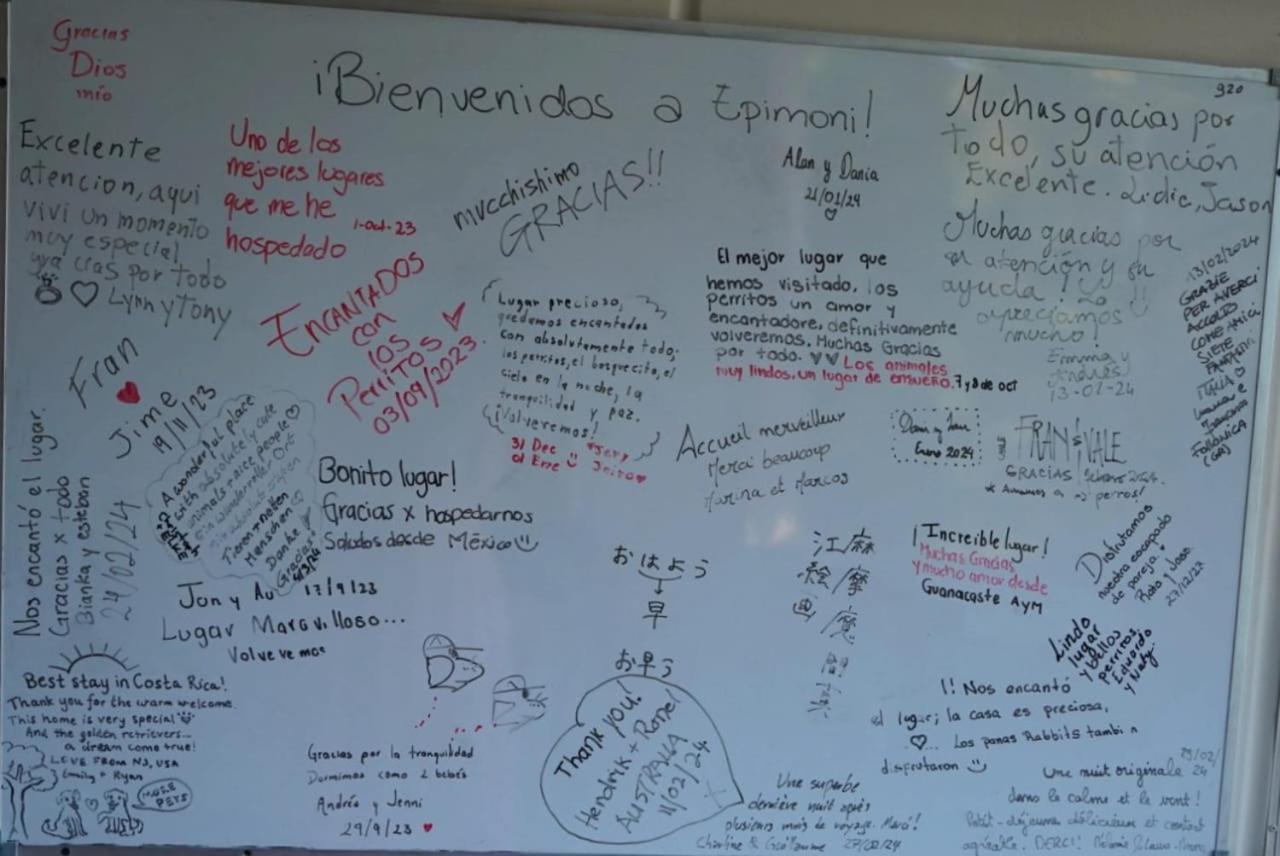 Gracias
Dios
mío
¡Bienvenidos a Epimoni!
920
Muchas gracias por
todo, su atención
Excelente. Lidic, Jason
Excelente
atencion, aqui
vivi un momento
muy especial
gracias por todo
Lynn y Tony
Uno de los
mejores lugares
que me he
hospedado
1-oct-23
mucchishimo
GRACIAS!!
Alan y Dania
21/01/24
Muchas gracias por
su atención y su
ayuda! Lo
apreciamos
mucho!
Emma y
Andrés
13-02-24
13/02/2024
GRAZIE
PER AVERCI
ACCOLTO
COME AMICI
SIETE
FANTASTICI
ITALIA
FOLLONICA
(GR)
ENCANTADOS
con
los
Perritos
03/09/2023
Lugar precioso,
quedamos encantados
con absolutamente todo;
los perritos, el bosquecito, el
cielo en la noche, la
tranquilidad y paz.
¡Volveremos!
31 Dec
01 Ene
El mejor lugar que
hemos visitado, los
perritos un amor y
encantadore, definitivamente
volveremos. Muchas Gracias
por todo. Los animales
muy lindos, un lugar de ensueño. 7 y 8 de oct
Fran
Jime
19/11/23
Nos encantó el lugar.
Gracias x todo
Bianka y esteban
24/02/24
A wonderful place
with absolutely cute
animals + nice people
Ein wundervoller Ort
Tieren + netten
Menschen
Danke
Gracias
Bonito lugar!
Gracias x hospedarnos
Saludos desde México
Accueil merveilleux
Merci beaucoup
Marina et Marcos
Enero 2024
FRAN & VALE
GRACIAS, febrero 2024.
* Amamos a los perros!
Jon y Au 17/9/23
Lugar Maravilloso...
Volvevemos
おはよう
早
お早う
江麻
絵摩
画魔
¡Increible lugar!
Muchas Gracias
y mucho amor desde
Guanacaste AyM
Disfrutamos
nuestra escapada
de pareja
27/12/23
Lindo
lugar
y bellos
perritos,
Eduardo
y Naty.
Best stay in Costa Rica!
Thank you for the warm welcome.
This home is very special
And the golden retrievers...
a dream come true!
LOVE FROM NJ, USA
Emily + Ryan
MORE
PETS
Gracias por la tranquilidad
Dormimos como 2 bebés
Andrés y Jenni
29/9/23
Thank you!
Hendrik + Ronel
AUSTRALIA
11/02/24
¡! Nos encantó
el lugar; la casa es preciosa,
Los panas Rabbits tambi n
disfrutaron
Une superbe
dernière nuit après
plusieurs mois de voyage. Merci!
Charline & Guillaume 27/02/24
Une nuit originale
dans le calme et le vent!
Petit-déjeuner délicieux et contact
agréable. MERCI!